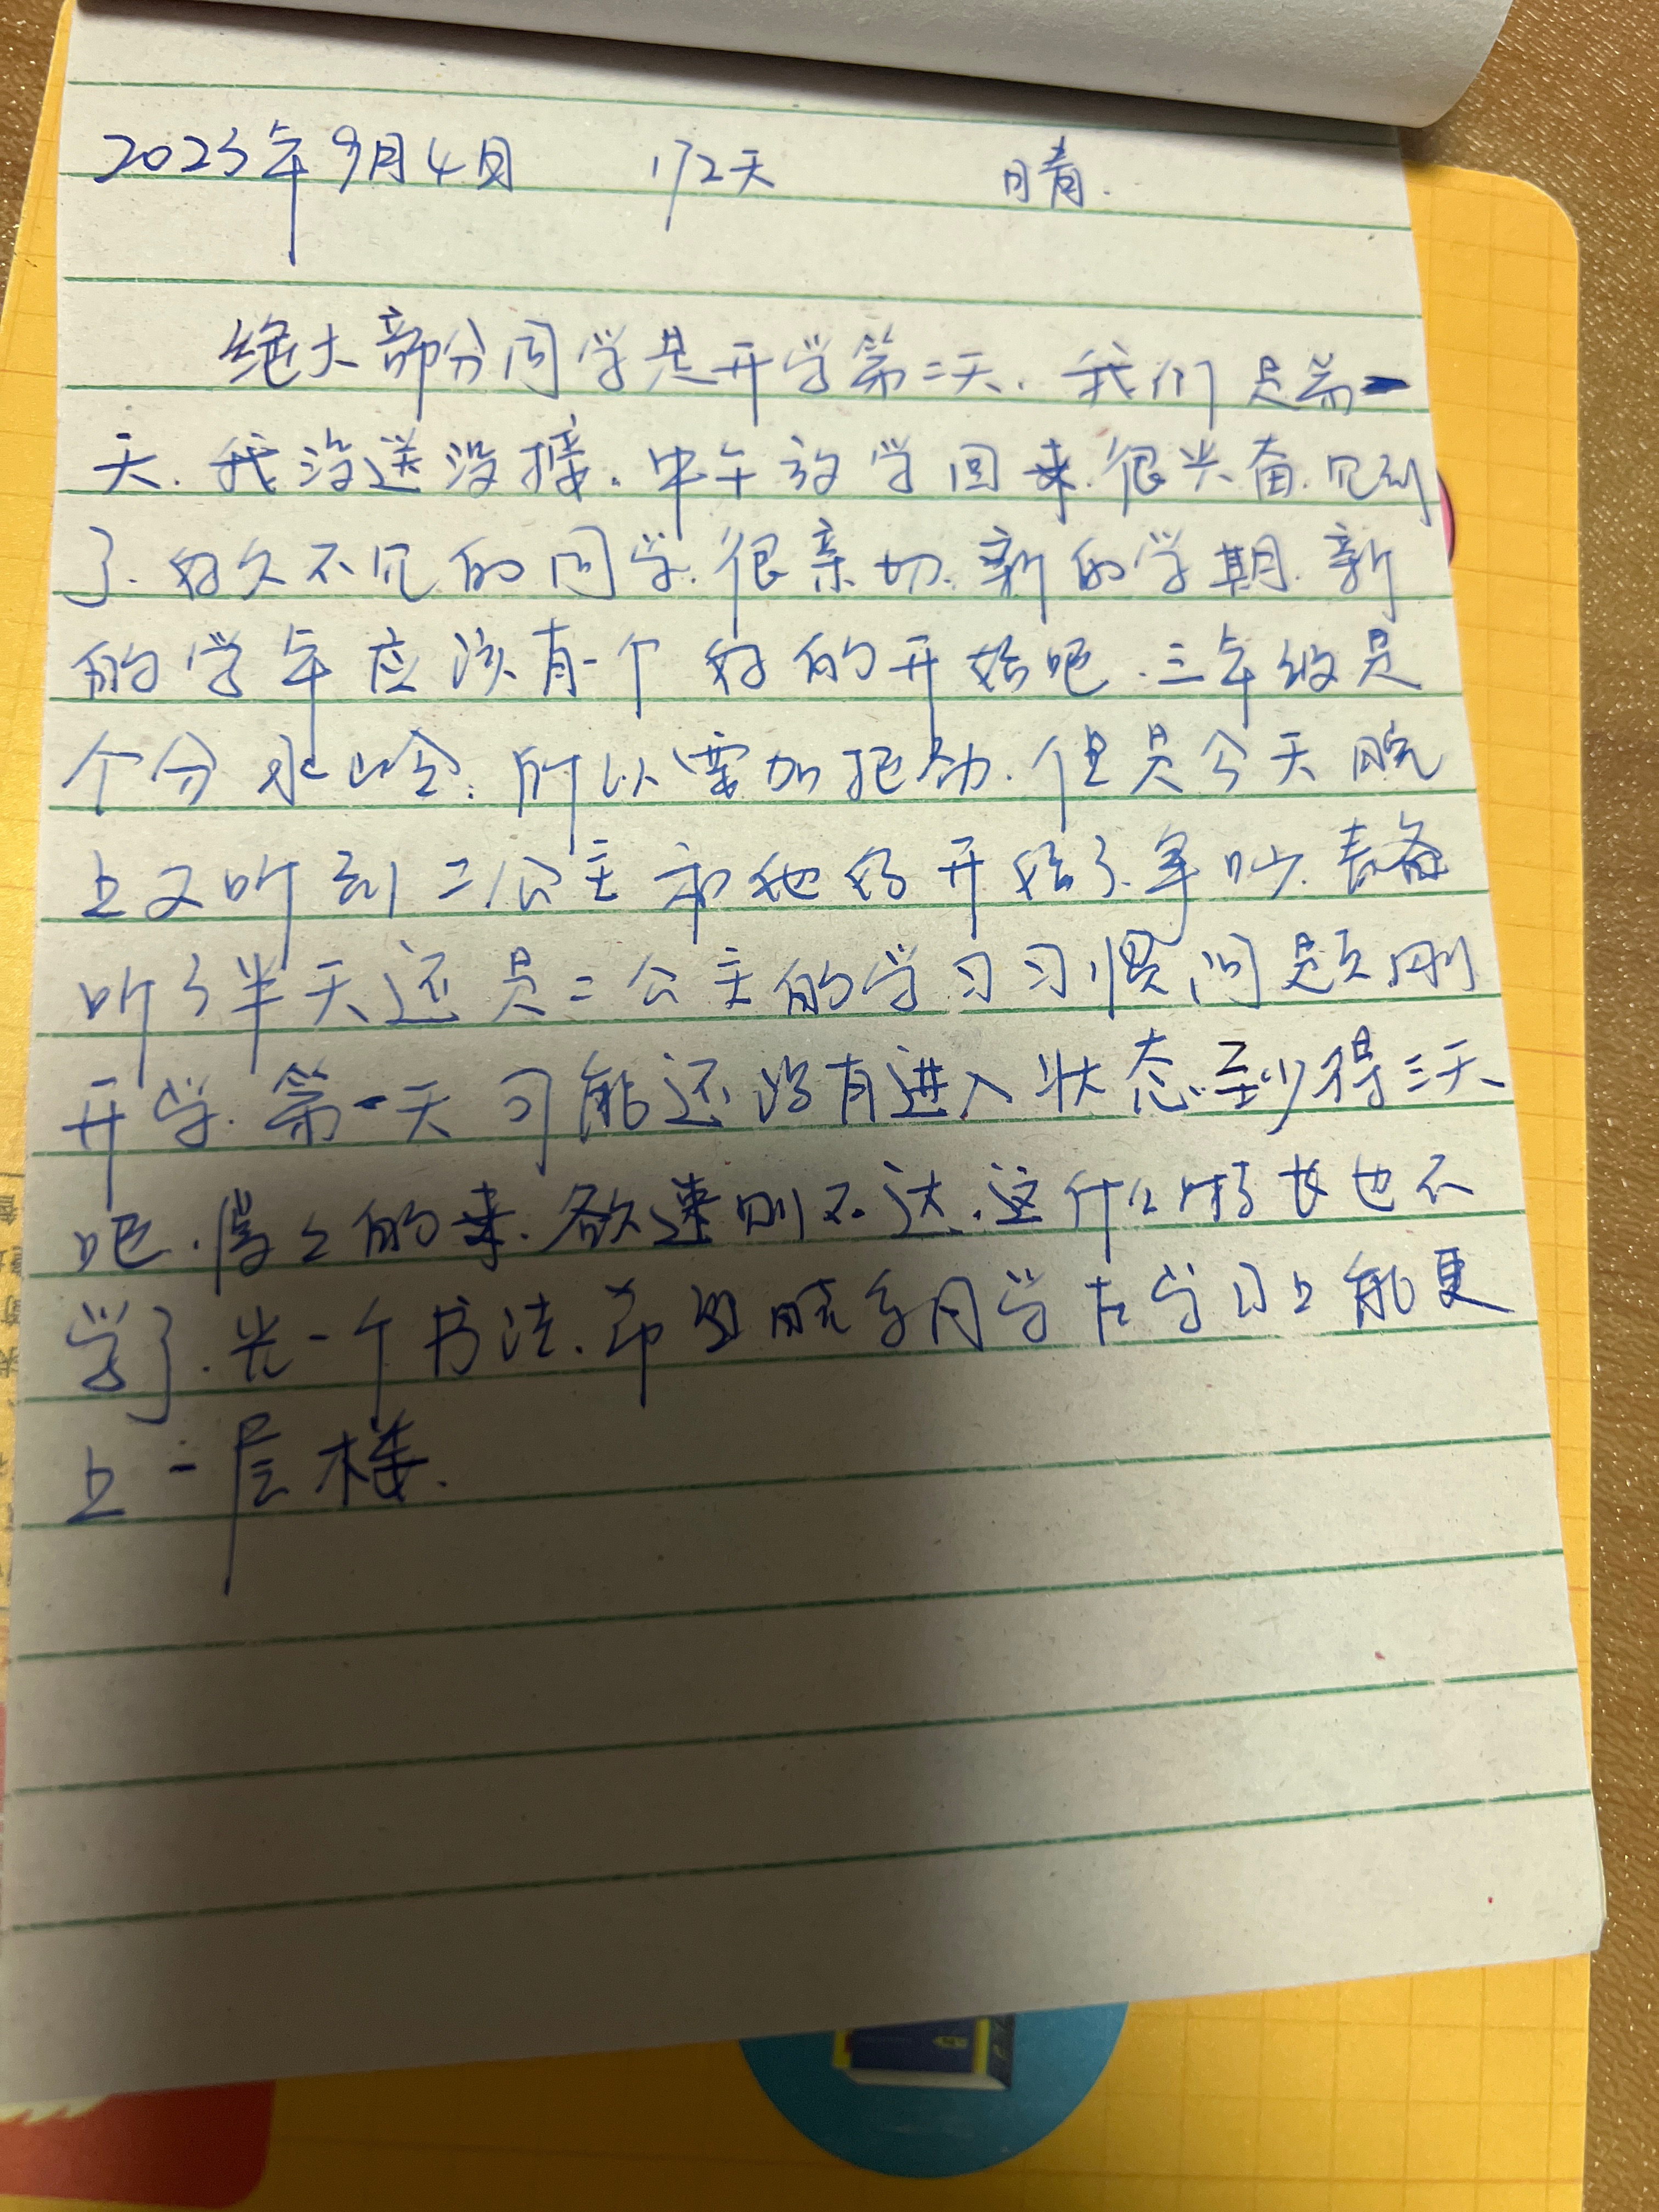 2023年9月4日 172天 晴.
绝大部分同学是开学第二天.我们是第一
天.我没送没接.中午放学回来.很兴奋.见到
了.好久不见的同学.很亲切.新的学期.新
的学年应该有一个好的开始吧.三年级是
个分水岭.所以要加把劲.但是今天晚
上又听到二公主和她妈开始了争吵.
听了半天还是二公主的学习习惯问题.刚
开学.第一天可能还没有进入状态.至少得三天
吧.慢慢的来.欲速则不达.这什么特长也不
学了.光一个书法.希望晓同学在学习上能更
上一层楼.